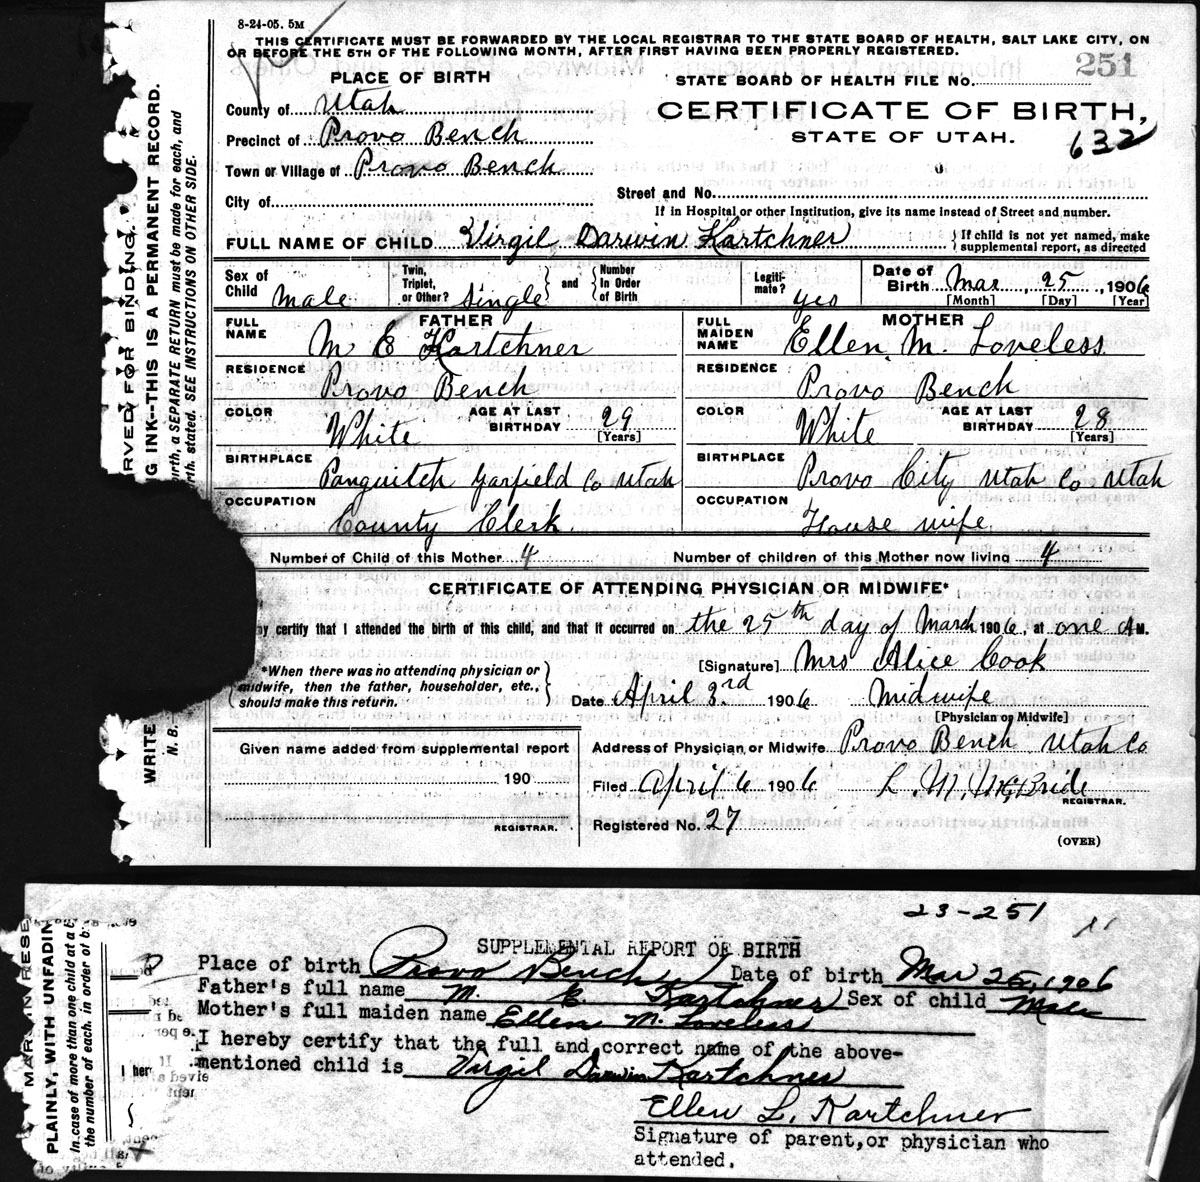 8-24-05. 5M
THIS CERTIFICATE MUST BE FORWARDED BY THE LOCAL REGISTRAR TO THE STATE BOARD OF HEALTH, SALT LAKE CITY, ON
OR BEFORE THE 5TH OF THE FOLLOWING MONTH, AFTER FIRST HAVING BEEN PROPERLY REGISTERED.
PLACE OF BIRTH
STATE BOARD OF HEALTH FILE No. 251
County of Utah
CERTIFICATE OF BIRTH,
Precinct of Provo Bench
STATE OF UTAH.
632
Town or Village of Provo Bench
City of
Street and No.
If in Hospital or other Institution, give its name instead of Street and number.
FULL NAME OF CHILD Virgil Darwin Kartchner { If child is not yet named, make
supplemental report, as directed
Sex of Child Male
Twin, Triplet, or Other? Single } and { Number In Order of Birth
Legiti-mate? yes
Date of Birth Mar 25, 1906
[Month] [Day] [Year]
FATHER
FULL NAME M E Kartchner
MOTHER
FULL MAIDEN NAME Ellen. M. Loveless.
RESIDENCE Provo Bench
RESIDENCE Provo Bench
COLOR White AGE AT LAST BIRTHDAY 29 [Years]
COLOR White AGE AT LAST BIRTHDAY 28 [Years]
BIRTHPLACE Panguitch Garfield Co Utah
BIRTHPLACE Provo City Utah Co Utah
OCCUPATION County Clerk
OCCUPATION House wife
Number of Child of this Mother 4 Number of children of this Mother now living 4
CERTIFICATE OF ATTENDING PHYSICIAN OR MIDWIFE*
by certify that I attended the birth of this child, and that it occurred on the 25th day of March 1906, at one A M.
*When there was no attending physician or
midwife, then the father, householder, etc.,
should make this return.
[Signature] Mrs Alice Cook
Date April 3rd 1906 Midwife
[Physician or Midwife]
Given name added from supplemental report
190
REGISTRAR.
Address of Physician or Midwife Provo Bench Utah Co
Filed April 6 1906 L. M. McBride
REGISTRAR.
Registered No. 27
(OVER)
RVED FOR BINDING.
G INK--THIS IS A PERMANENT RECORD.
birth, a SEPARATE RETURN must be made for each, and
rth. stated. SEE INSTRUCTIONS ON OTHER SIDE.
WRITE
N. B.
23-251
SUPPLEMENTAL REPORT OF BIRTH
Place of birth Provo Bench Date of birth Mar 25, 1906
Father's full name M. E. Kartchner Sex of child Male
Mother's full maiden name Ellen M. Loveless
I hereby certify that the full and correct name of the above-
mentioned child is Virgil Darwin Kartchner
Ellen L. Kartchner
Signature of parent, or physician who
attended.
MARGIN RESE
PLAINLY, WITH UNFADIN
In case of more than one child at a b
the number of each. in order of b
I her